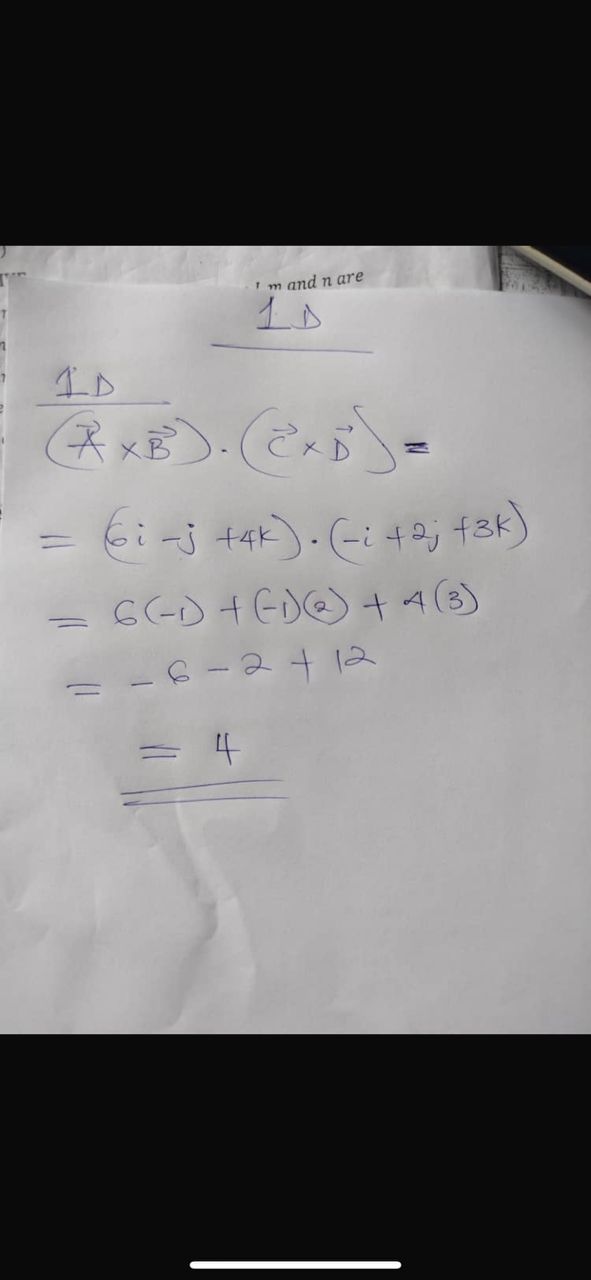 m and n are
1D
1D
(A⃗ × B⃗) . (C⃗ × D⃗) =
= (6i - j + 4k) . (-i + 2j + 3k)
= 6(-1) + (-1)(2) + 4(3)
= - 6 - 2 + 12
= 4